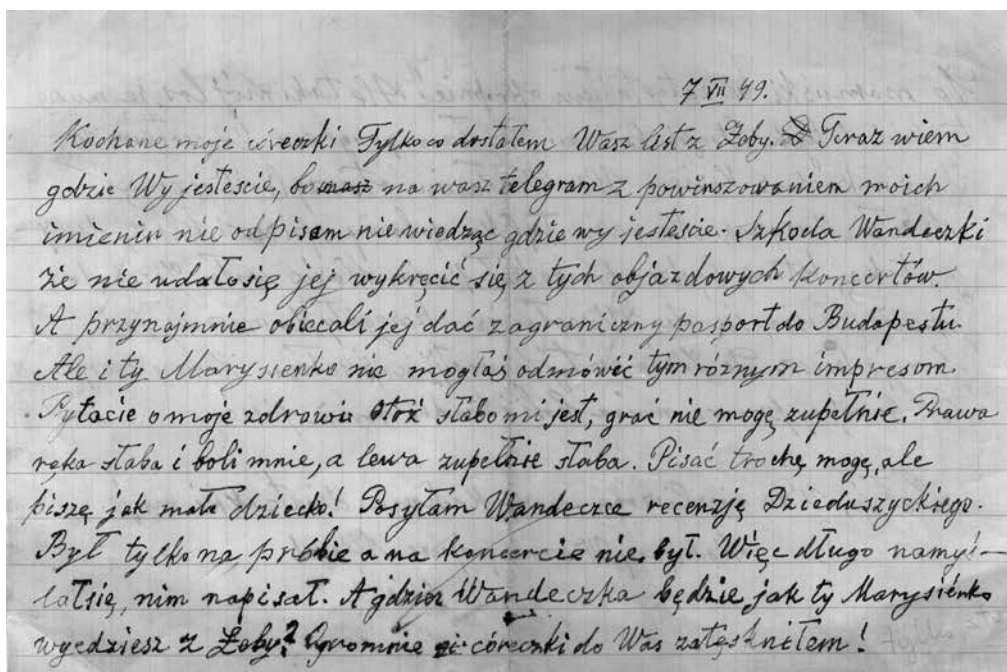 7 VII 49.
Kochane moje córeczki Tylko co dostałem Wasz list z Łeby. Teraz wiem
gdzie Wy jesteście, bo na wasz telegram z powinszowaniem moich
imienin nie odpisam nie wiedząc gdzie wy jesteście. Szkoda Wandeczki
że nie udało się jej wykręcić się z tych objazdowych koncertów.
A przynajmnie obiecali jej dać zagraniczny pasport do Budapestu.
Ale i ty Marysieńko nie mogłaś odmówić tym różnym impresom.
Pytacie o moje zdrowie otóż słabo mi jest, grać nie mogę zupełnie. Prawa
ręka słaba i boli mnie, a lewa zupełnie słaba. Pisać trochę mogę, ale
piszę jak małe dziecko! Posyłam Wandeczce recenzję Dzieduszyckiego.
Był tylko na próbie a na koncercie nie był. Więc długo namyś-
lał się, nim napisał. A gdzie Wandeczka będzie jak ty Marysieńko
wyedziesz z Łeby? Ogromnie córeczki do Was zatęskniłem!